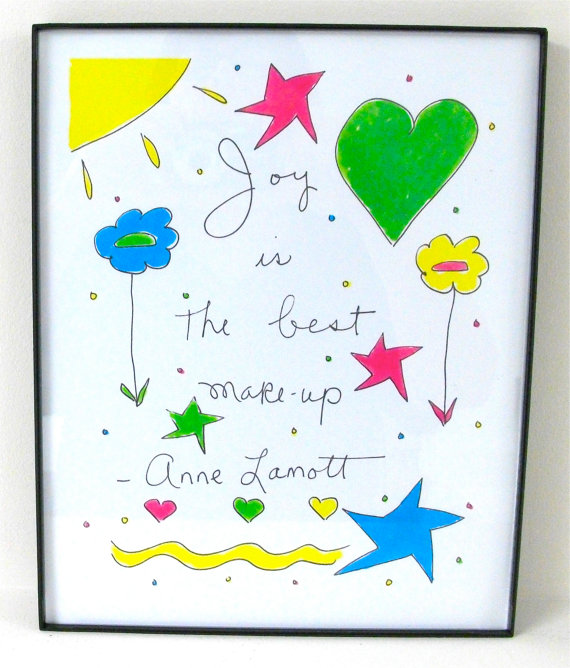 Joy
is
the best
make-up
- Anne Lamott